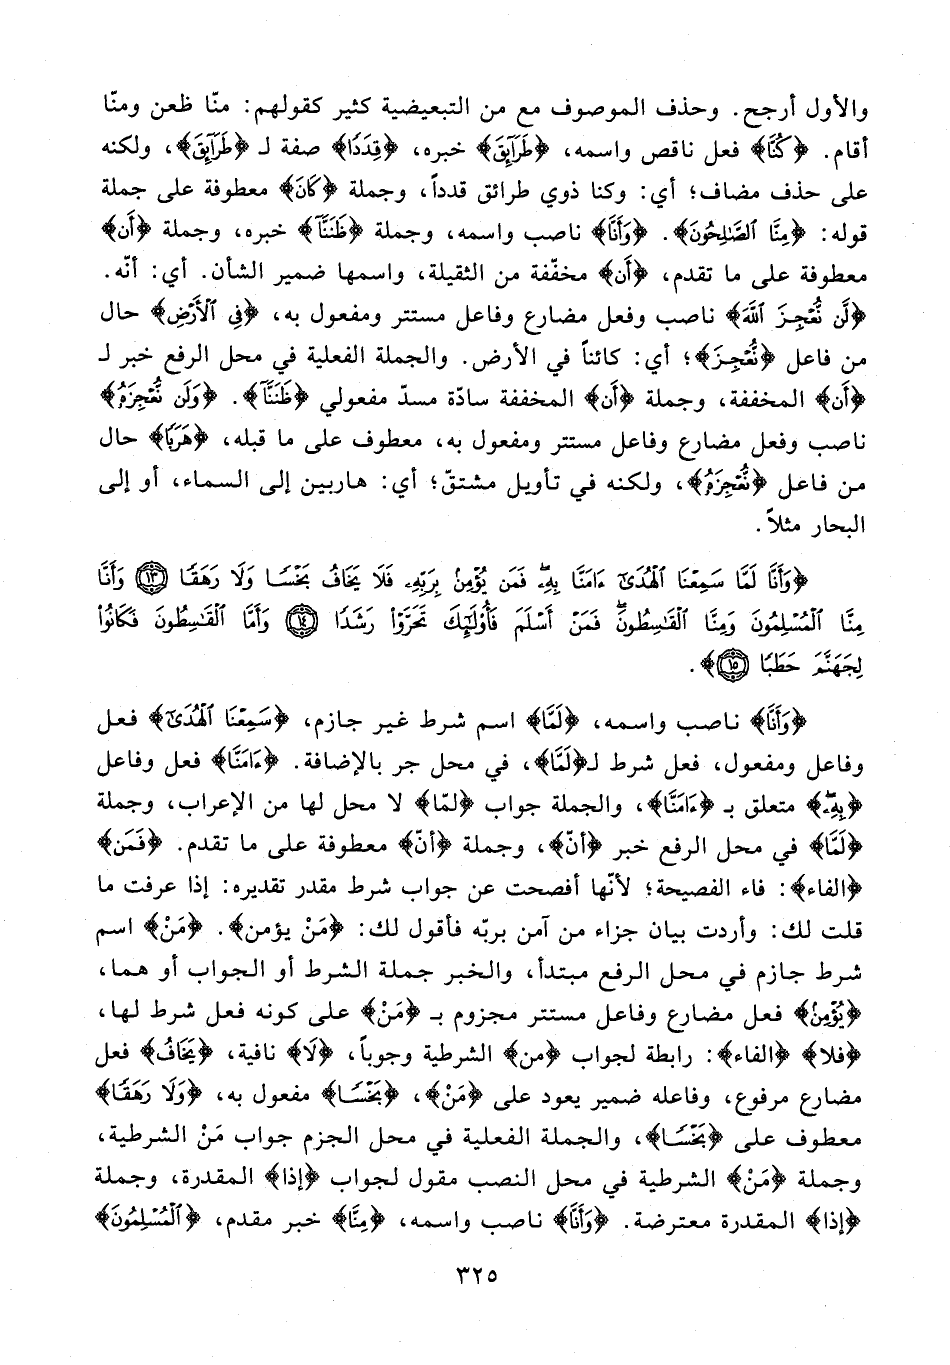 والأول أرجح. وحذف الموصوف مع من التبعيضية كثير كقولهم: منّا ظعن ومنّا
أقام. ﴿كُنَّا﴾ فعل ناقص واسمه، ﴿طَرَآئِقَ﴾ خبره، ﴿قِدَدًا﴾ صفة لـ ﴿طَرَآئِقَ﴾، ولكنه
على حذف مضاف؛ أي: وكنا ذوي طرائق قدداً، وجملة ﴿كَانَ﴾ معطوفة على جملة
قوله: ﴿مِنَّا ٱلصَّٰلِحُونَ﴾. ﴿وَأَنَّا﴾ ناصب واسمه، وجملة ﴿ظَنَنَّآ﴾ خبره، وجملة ﴿أَن﴾
معطوفة على ما تقدم، ﴿أَن﴾ مخفّفة من الثقيلة، واسمها ضمير الشأن. أي: أنّه.
﴿لَّن نُّعْجِزَ ٱللَّهَ﴾ ناصب وفعل مضارع وفاعل مستتر ومفعول به، ﴿فِى ٱلْأَرْضِ﴾ حال
من فاعل ﴿نُّعْجِزَ﴾؛ أي: كائناً في الأرض. والجملة الفعلية في محل الرفع خبر لـ
﴿أَن﴾ المخففة، وجملة ﴿أَن﴾ المخففة سادّة مسدّ مفعولي ﴿ظَنَنَّآ﴾. ﴿وَلَن نُّعْجِزَهُۥ﴾
ناصب وفعل مضارع وفاعل مستتر ومفعول به، معطوف على ما قبله، ﴿هَرَبًا﴾ حال
من فاعل ﴿نُّعْجِزَهُۥ﴾، ولكنه في تأويل مشتقّ؛ أي: هاربين إلى السماء، أو إلى
البحار مثلاً.
﴿وَأَنَّا لَمَّا سَمِعْنَا ٱلْهُدَىٰٓ ءَامَنَّا بِهِۦ ۖ فَمَن يُؤْمِنۢ بِرَبِّهِۦ فَلَا يَخَافُ بَخْسًا وَلَا رَهَقًا ١٣ وَأَنَّا
مِنَّا ٱلْمُسْلِمُونَ وَمِنَّا ٱلْقَٰسِطُونَ ۖ فَمَنْ أَسْلَمَ فَأُو۟لَٰٓئِكَ تَحَرَّوْا۟ رَشَدًا ١٤ وَأَمَّا ٱلْقَٰسِطُونَ فَكَانُوا۟
لِجَهَنَّمَ حَطَبًا ١٥﴾.
﴿وَأَنَّا﴾ ناصب واسمه، ﴿لَمَّا﴾ اسم شرط غير جازم، ﴿سَمِعْنَا ٱلْهُدَىٰٓ﴾ فعل
وفاعل ومفعول، فعل شرط لـ﴿لَمَّا﴾، في محل جر بالإضافة. ﴿ءَامَنَّا﴾ فعل وفاعل
﴿بِهِۦ ۖ﴾ متعلق بـ ﴿ءَامَنَّا﴾، والجملة جواب ﴿لمّا﴾ لا محل لها من الإعراب، وجملة
﴿لَمَّا﴾ في محل الرفع خبر ﴿أنّ﴾، وجملة ﴿أنّ﴾ معطوفة على ما تقدم. ﴿فَمَن﴾
﴿الفاء﴾: فاء الفصيحة؛ لأنّها أفصحت عن جواب شرط مقدر تقديره: إذا عرفت ما
قلت لك: وأردت بيان جزاء من آمن بربّه فأقول لك: ﴿مَنْ يؤمن﴾. ﴿مَنْ﴾ اسم
شرط جازم في محل الرفع مبتدأ، والخبر جملة الشرط أو الجواب أو هما،
﴿يُؤْمِنۢ﴾ فعل مضارع وفاعل مستتر مجزوم بـ ﴿مَنْ﴾ على كونه فعل شرط لها،
﴿فلا﴾ ﴿الفاء﴾: رابطة لجواب ﴿من﴾ الشرطية وجوباً، ﴿لَا﴾ نافية، ﴿يَخَافُ﴾ فعل
مضارع مرفوع، وفاعله ضمير يعود على ﴿مَنْ﴾، ﴿بَخْسًا﴾ مفعول به، ﴿وَلَا رَهَقًا﴾
معطوف على ﴿بَخْسًا﴾، والجملة الفعلية في محل الجزم جواب مَنْ الشرطية،
وجملة ﴿مَنْ﴾ الشرطية في محل النصب مقول لجواب ﴿إذا﴾ المقدرة، وجملة
﴿إذا﴾ المقدرة معترضة. ﴿وَأَنَّا﴾ ناصب واسمه، ﴿مِنَّا﴾ خبر مقدم، ﴿ٱلْمُسْلِمُونَ﴾
٣٢٥